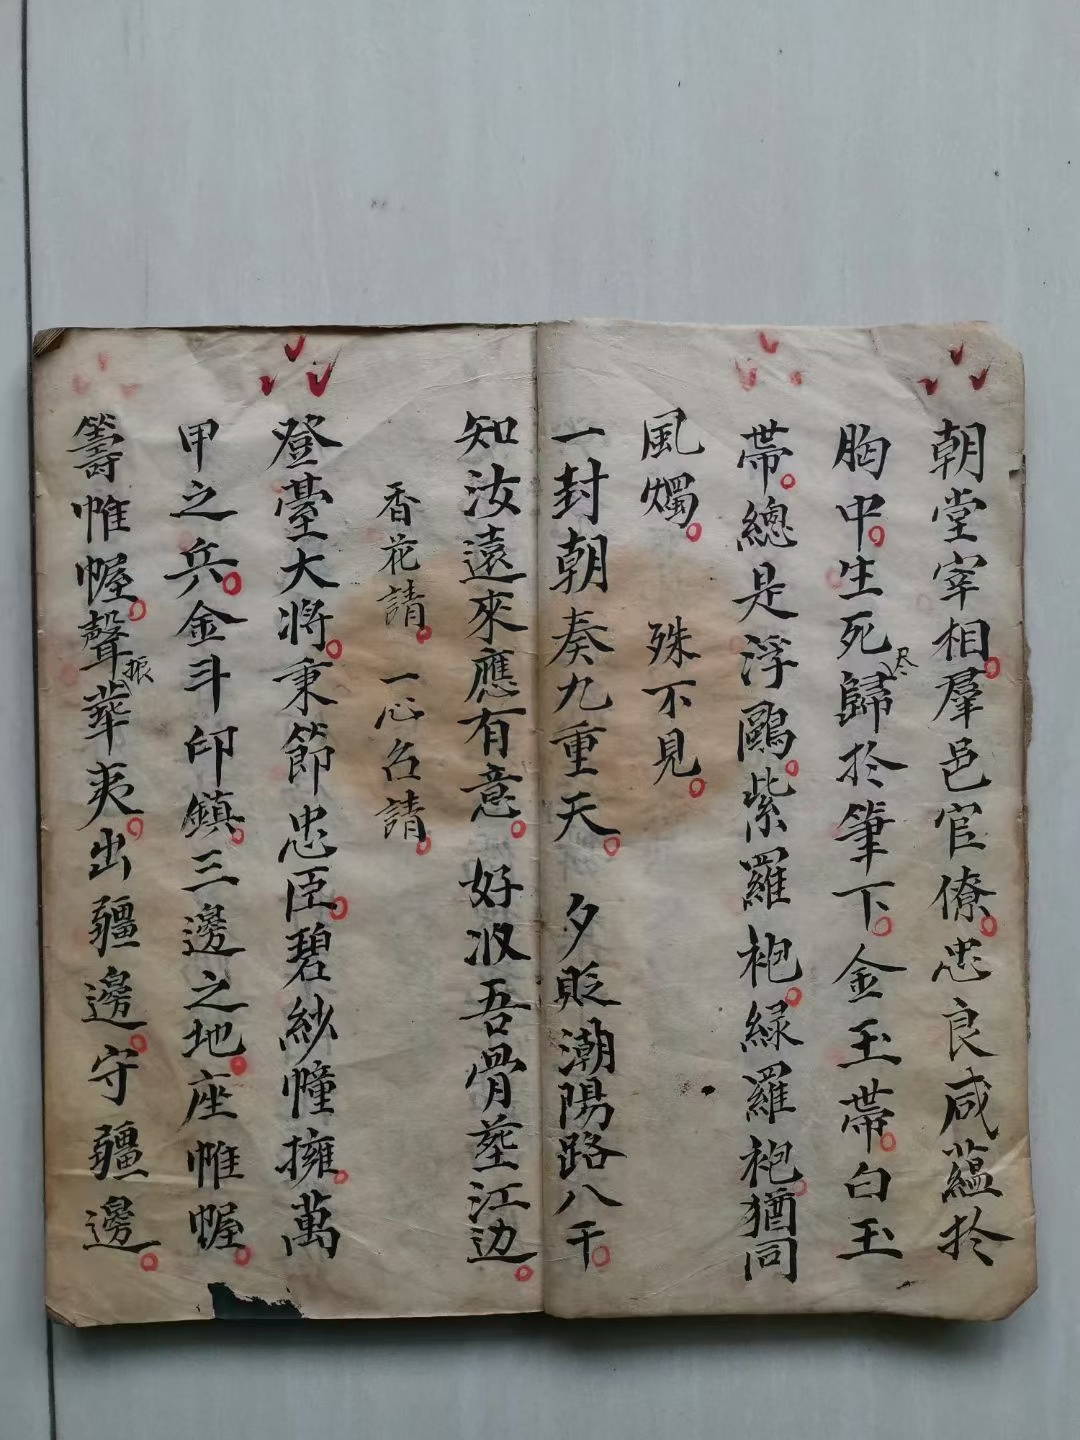 朝堂宰相。羣邑官僚。忠良咸蘊於
胸中。生死尽歸於筆下。金玉帶。白玉
帶。總是浮鷗。紫羅袍。緑羅袍。猶同
風燭。 殊不見。
一封朝奏九重天。夕貶潮陽路八千。
知汝遠來應有意。好收吾骨塟江边。
香花請。一心召請。
登臺大将。秉節忠臣。碧紗幢擁。萬
甲之兵。金斗印鎮。三邊之地。座帷幄。
籌帷幄。聲振華夷。出疆邊。守疆邊。